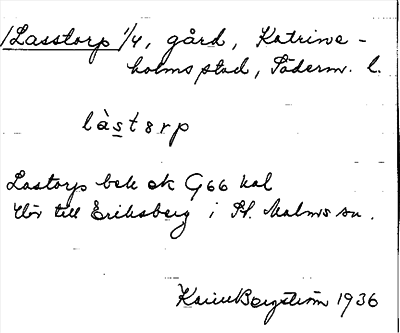 /Lasstorp 1/4, gård, Katrine-
holms stad, Söderm. l.
làstɘrp
Lastorp bek ek G66 kal
Hör till Eriksberg i St. Malms sn.
Karin Bergström 1936